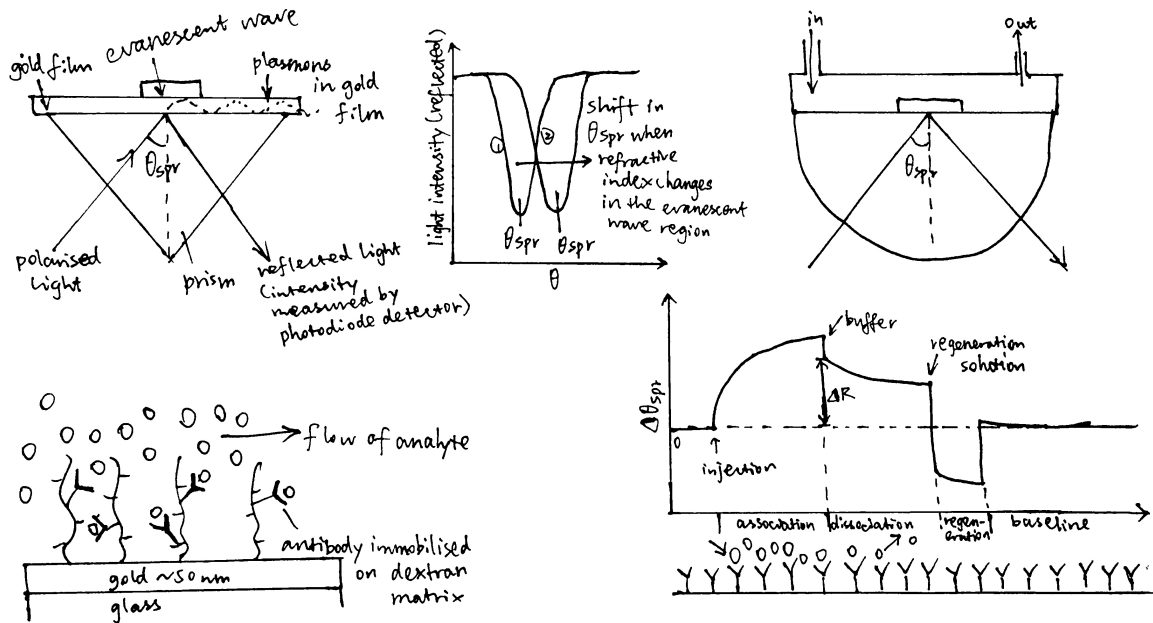 gold film
evanescent wave
plasmons
in gold
film
θspr
polarised
light
prism
reflected light
(intensity
measured by
photodiode detector)
light intensity (reflected)
①
②
shift in
θspr when
refractive
index changes
in the evanescent
wave region
θspr
θspr
θ
in
out
θspr
flow of analyte
antibody immobilised
on dextran
matrix
gold ~50 nm
glass
Δθspr
0
injection
buffer
ΔR
regeneration
solution
association
dissociation
regen-
eration
baseline